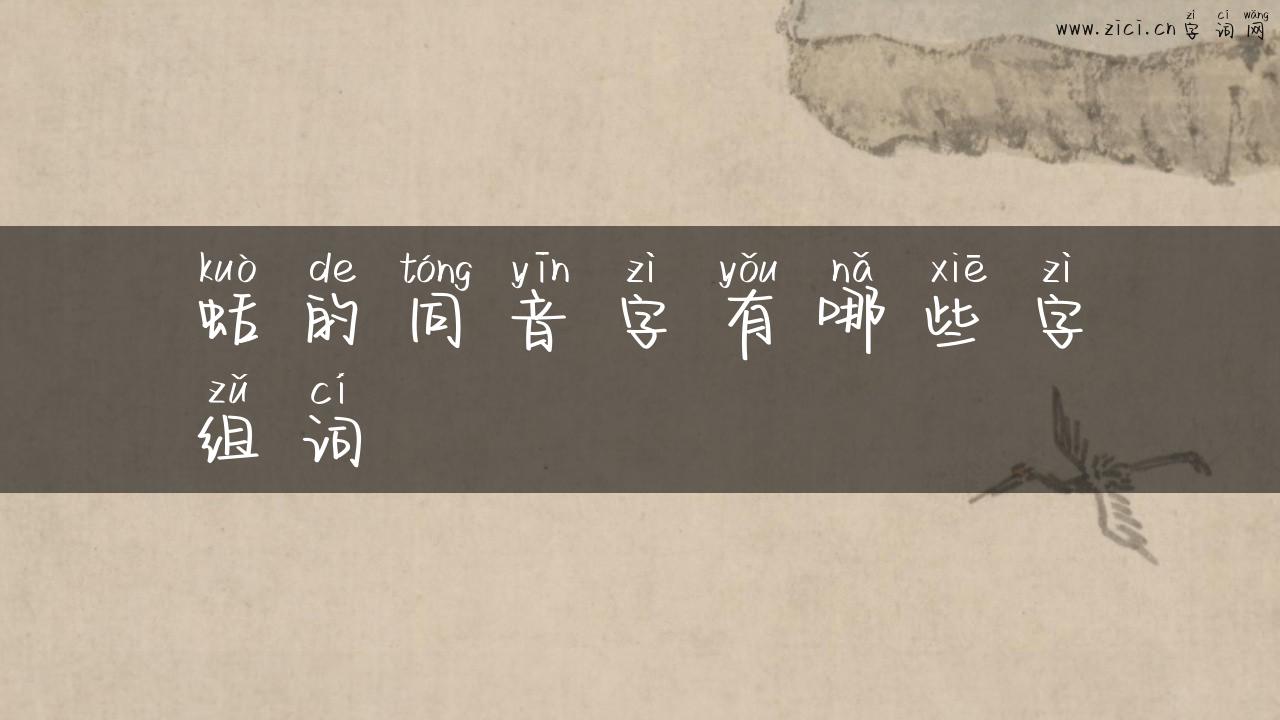 zì cí wǎng
www.zici.cn 字词网
kuò de tóng yīn zì yǒu nǎ xiē zì
蛞的同音字有哪些字
zǔ cí
组词